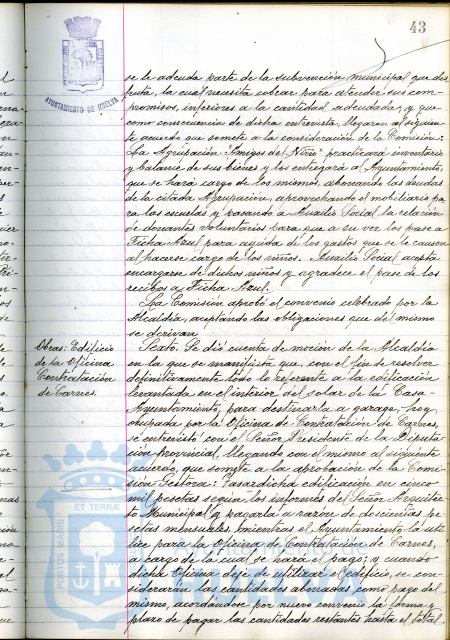 43
AYUNTAMIENTO DE HUELVA
se le adeuda parte de la subvención municipal que dis
fruta, la cual necesita cobrar para atender sus com-
promisos, inferiores a la cantidad adeudada, y que
como consecuencia de dicha entrevista llegaron al siguien
te acuerdo que somete a la consideración de la Comisión:
La Agrupación "Amigos del Niño" practicará inventario
y balance de sus bienes y los entregará al Ayuntamiento,
que se hará cargo de los mismos, abonando las deudas
de la citada Agrupación, aprovechando el mobiliario pa
ra las escuelas y pasando a Auxilio Social la relación
de donantes voluntarios para que a su vez los pase a
Ficha Azul para ayuda de los gastos que se le causen
al hacerse cargo de los niños. Auxilio Social acepta
encargarse de dichos niños y agradece el pase de los
recibos a Ficha Azul.
La Comisión aprobó el convenio celebrado por la
Alcaldía, aceptando las obligaciones que del mismo
se derivan.
Obras: Edificio
de la Oficina
Contratación
de Carnes.
Sexto. Se dió cuenta de moción de la Alcaldía
en la que se manifiesta que, con el fin de resolver
definitivamente todo lo referente a la edificación
levantada en el interior del solar de la Casa-
Ayuntamiento, para destinarla a garage, hoy
ocupada por la Oficina de Contratación de Carnes,
se entrevistó con el Señor Presidente de la Diputa
ción Provincial, llegando con el mismo al siguiente
acuerdo, que somete a la aprobación de la Comi
sión Gestora: Tasar dicha edificación en cinco
mil pesetas según los informes del Señor Arquitec
to Municipal y pagarla a razón de doscientas pe
setas mensuales, mientras el Ayuntamiento la uti
lice para la Oficina de Contratación de Carnes,
a cargo de la cual se hará el pago; y cuando
dicha Oficina deje de utilizar el edificio, se con-
siderarán las cantidades abonadas como pago del
mismo, acordándose por nuevo convenio la forma y
plazo de pagar las cantidades restantes hasta el total
PORTUS MARIS
ET TERRÆ
Ayuntamiento de
HUELVA